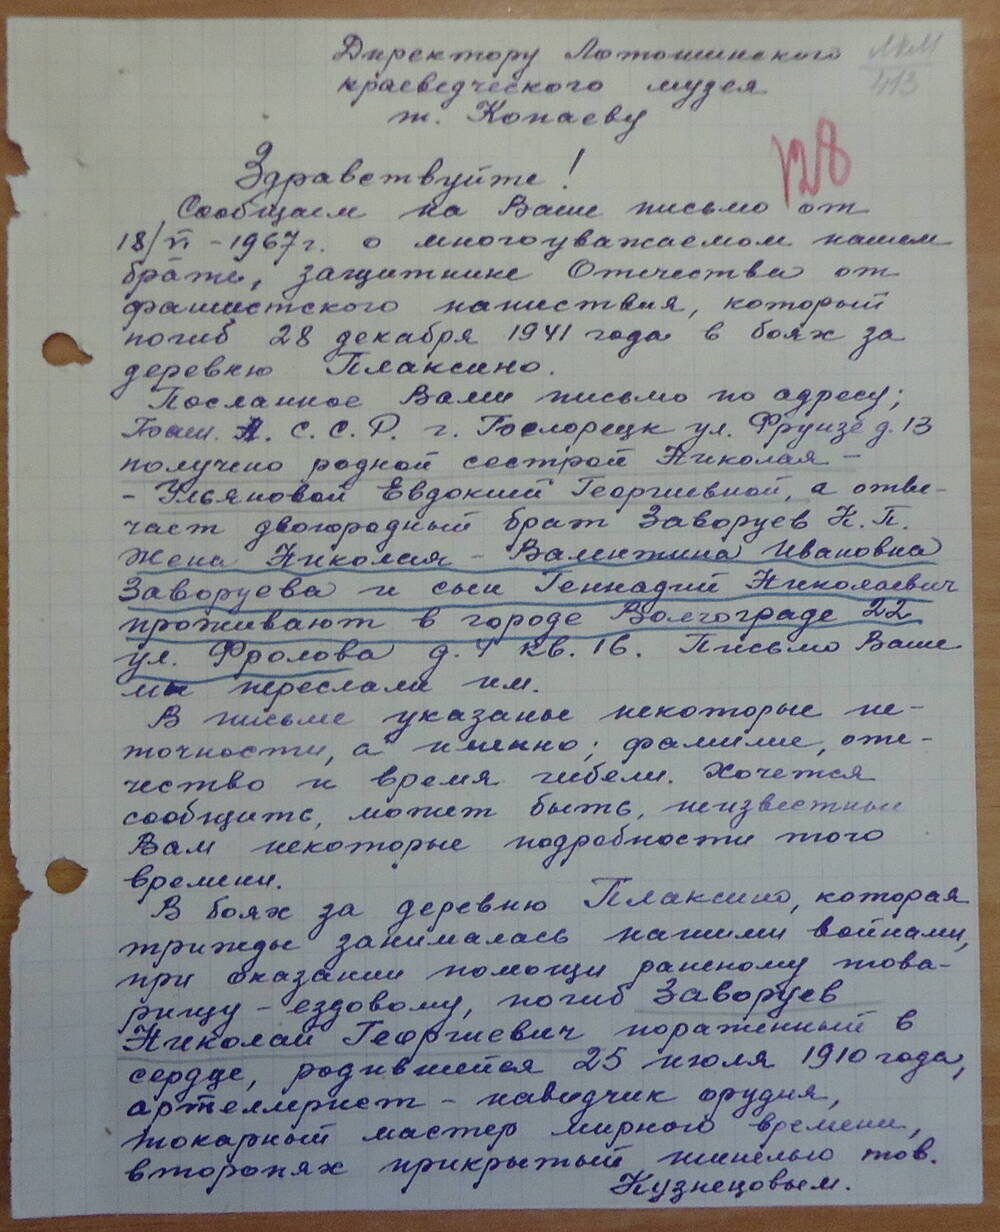 Директору Лотошинского
краеведческого музея
т. Копаеву
ЛКМ
413
128
Здравствуйте!
Сообщаем на Ваше письмо от
18/VI - 1967 г. о многоуважаемом нашем
брате, защитнике Отечества от
фашистского нашествия, который
погиб 28 декабря 1941 года в боях за
деревню Плаксино.
Посланное Вами письмо по адресу;
Баш. А. С. С. Р. г. Белорецк ул. Фрунзе д. 13
получено родной сестрой Николая -
- Ульяновой Евдокией Георгиевной, а отве-
чает двогородный брат Заворуев Н. П.
Жена Николая - Валентина Ивановна
Заворуева и сын Геннадий Николаевич
проживают в городе Волгограде 22
ул. Фролова д. 4 кв. 16. Письмо Ваше
мы переслали им.
В письме указаны некоторые не-
точности, а именно; фамилие, оте-
чество и время гибели. Хочется
сообщить, может быть, неизвестные
Вам некоторые подробности того
времени.
В боях за деревню Плаксино, которая
трижды занималась нашими войнами,
при оказании помощи раненому това-
рищу - ездовому, погиб Заворуев
Николай Георгиевич пораженный в
сердце, родившейся 25 июля 1910 года,
артеллерист - наводчик орудия,
токарный мастер мирного времени,
второпях прикрытый шинелью тов.
Кузнецовым.